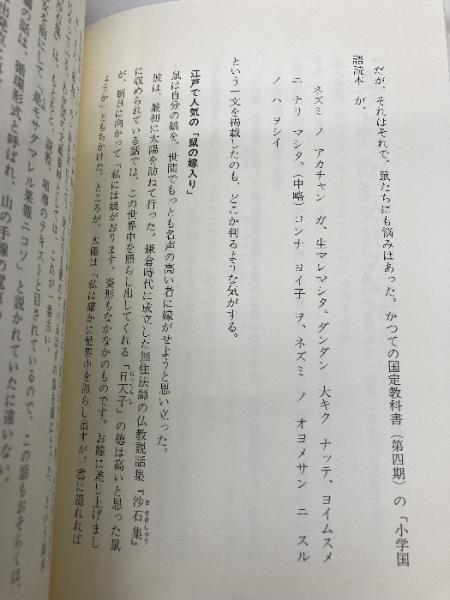 だが、それはそれで、鼠たちにも悩みはあった。かつての国定教科書（第四期）の「小学国
語読本」が、
ネズミ ノ アカチャン ガ、生マレマシタ。ダンダン 大キク ナッテ、ヨイムスメ
ニ ナリ マシタ。（中略）コンナ ヨイ子 ヲ、ネズミ ノ オヨメサン ニ スル
ノ ハ ヲシイ
という一文を掲載したのも、どこか判るような気がする。
江戸で人気の「鼠の嫁入り」
鼠は自分の娘を、世間でもっとも名声の高い者に嫁がせようと思い立った。
彼は、最初に太陽を訪ねて行った。鎌倉時代に成立した無住法師の仏教説話集『沙石集』
に収められている話では、この世界中を照らし出してくれる「日天子」の徳は高いと思った鼠
が、朝日に向かって「私には娘がおります。姿形もなかなかのものです。お嫁に差し上げまし
ょうか」ともちかけた。ところが、太陽は「私は確かに世界中を照らし出すが、雲に隠れれば
て「是モサタマレル果報ニコソ」と説かれていたに違いない。
の話は、循環形式と呼ばれ、山の手線の電車